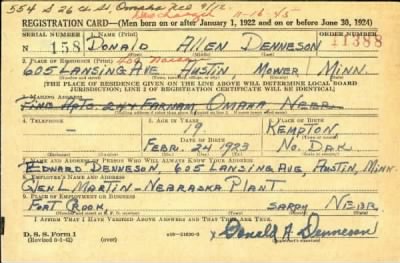 554 S 26th St, Omaha Rec 9/12
Discharged 11-16-45
REGISTRATION CARD—(Men born on or after January 1, 1922 and on or before June 30, 1924)
SERIAL NUMBER 1. NAME (Print) ORDER NUMBER
N 158 DONALD ALLEN DENNESON 11388
2. PLACE OF RESIDENCE (Print)
605 LANSING AVE AUSTIN, MOWER MINN.
[THE PLACE OF RESIDENCE GIVEN ON THE LINE ABOVE WILL DETERMINE LOCAL BOARD
JURISDICTION; LINE 2 OF REGISTRATION CERTIFICATE WILL BE IDENTICAL]
3. MAILING ADDRESS
FARNAM OMAHA NEBR.
4. TELEPHONE 5. AGE IN YEARS 6. PLACE OF BIRTH
19 KEMPTON
DATE OF BIRTH
FEB. 24 1923 NO. DAK.
7. NAME AND ADDRESS OF PERSON WHO WILL ALWAYS KNOW YOUR ADDRESS
EDWARD DENNESON, 605 LANSING AVE, AUSTIN, MINN.
8. EMPLOYER'S NAME AND ADDRESS
GLEN L MARTIN - NEBRASKA PLANT
9. PLACE OF EMPLOYMENT OR BUSINESS
FORT CROOK SARPY NEBR.
I AFFIRM THAT I HAVE VERIFIED ABOVE ANSWERS AND THAT THEY ARE TRUE.
D. S. S. Form 1
(Revised 6-1-42) Donald A Denneson